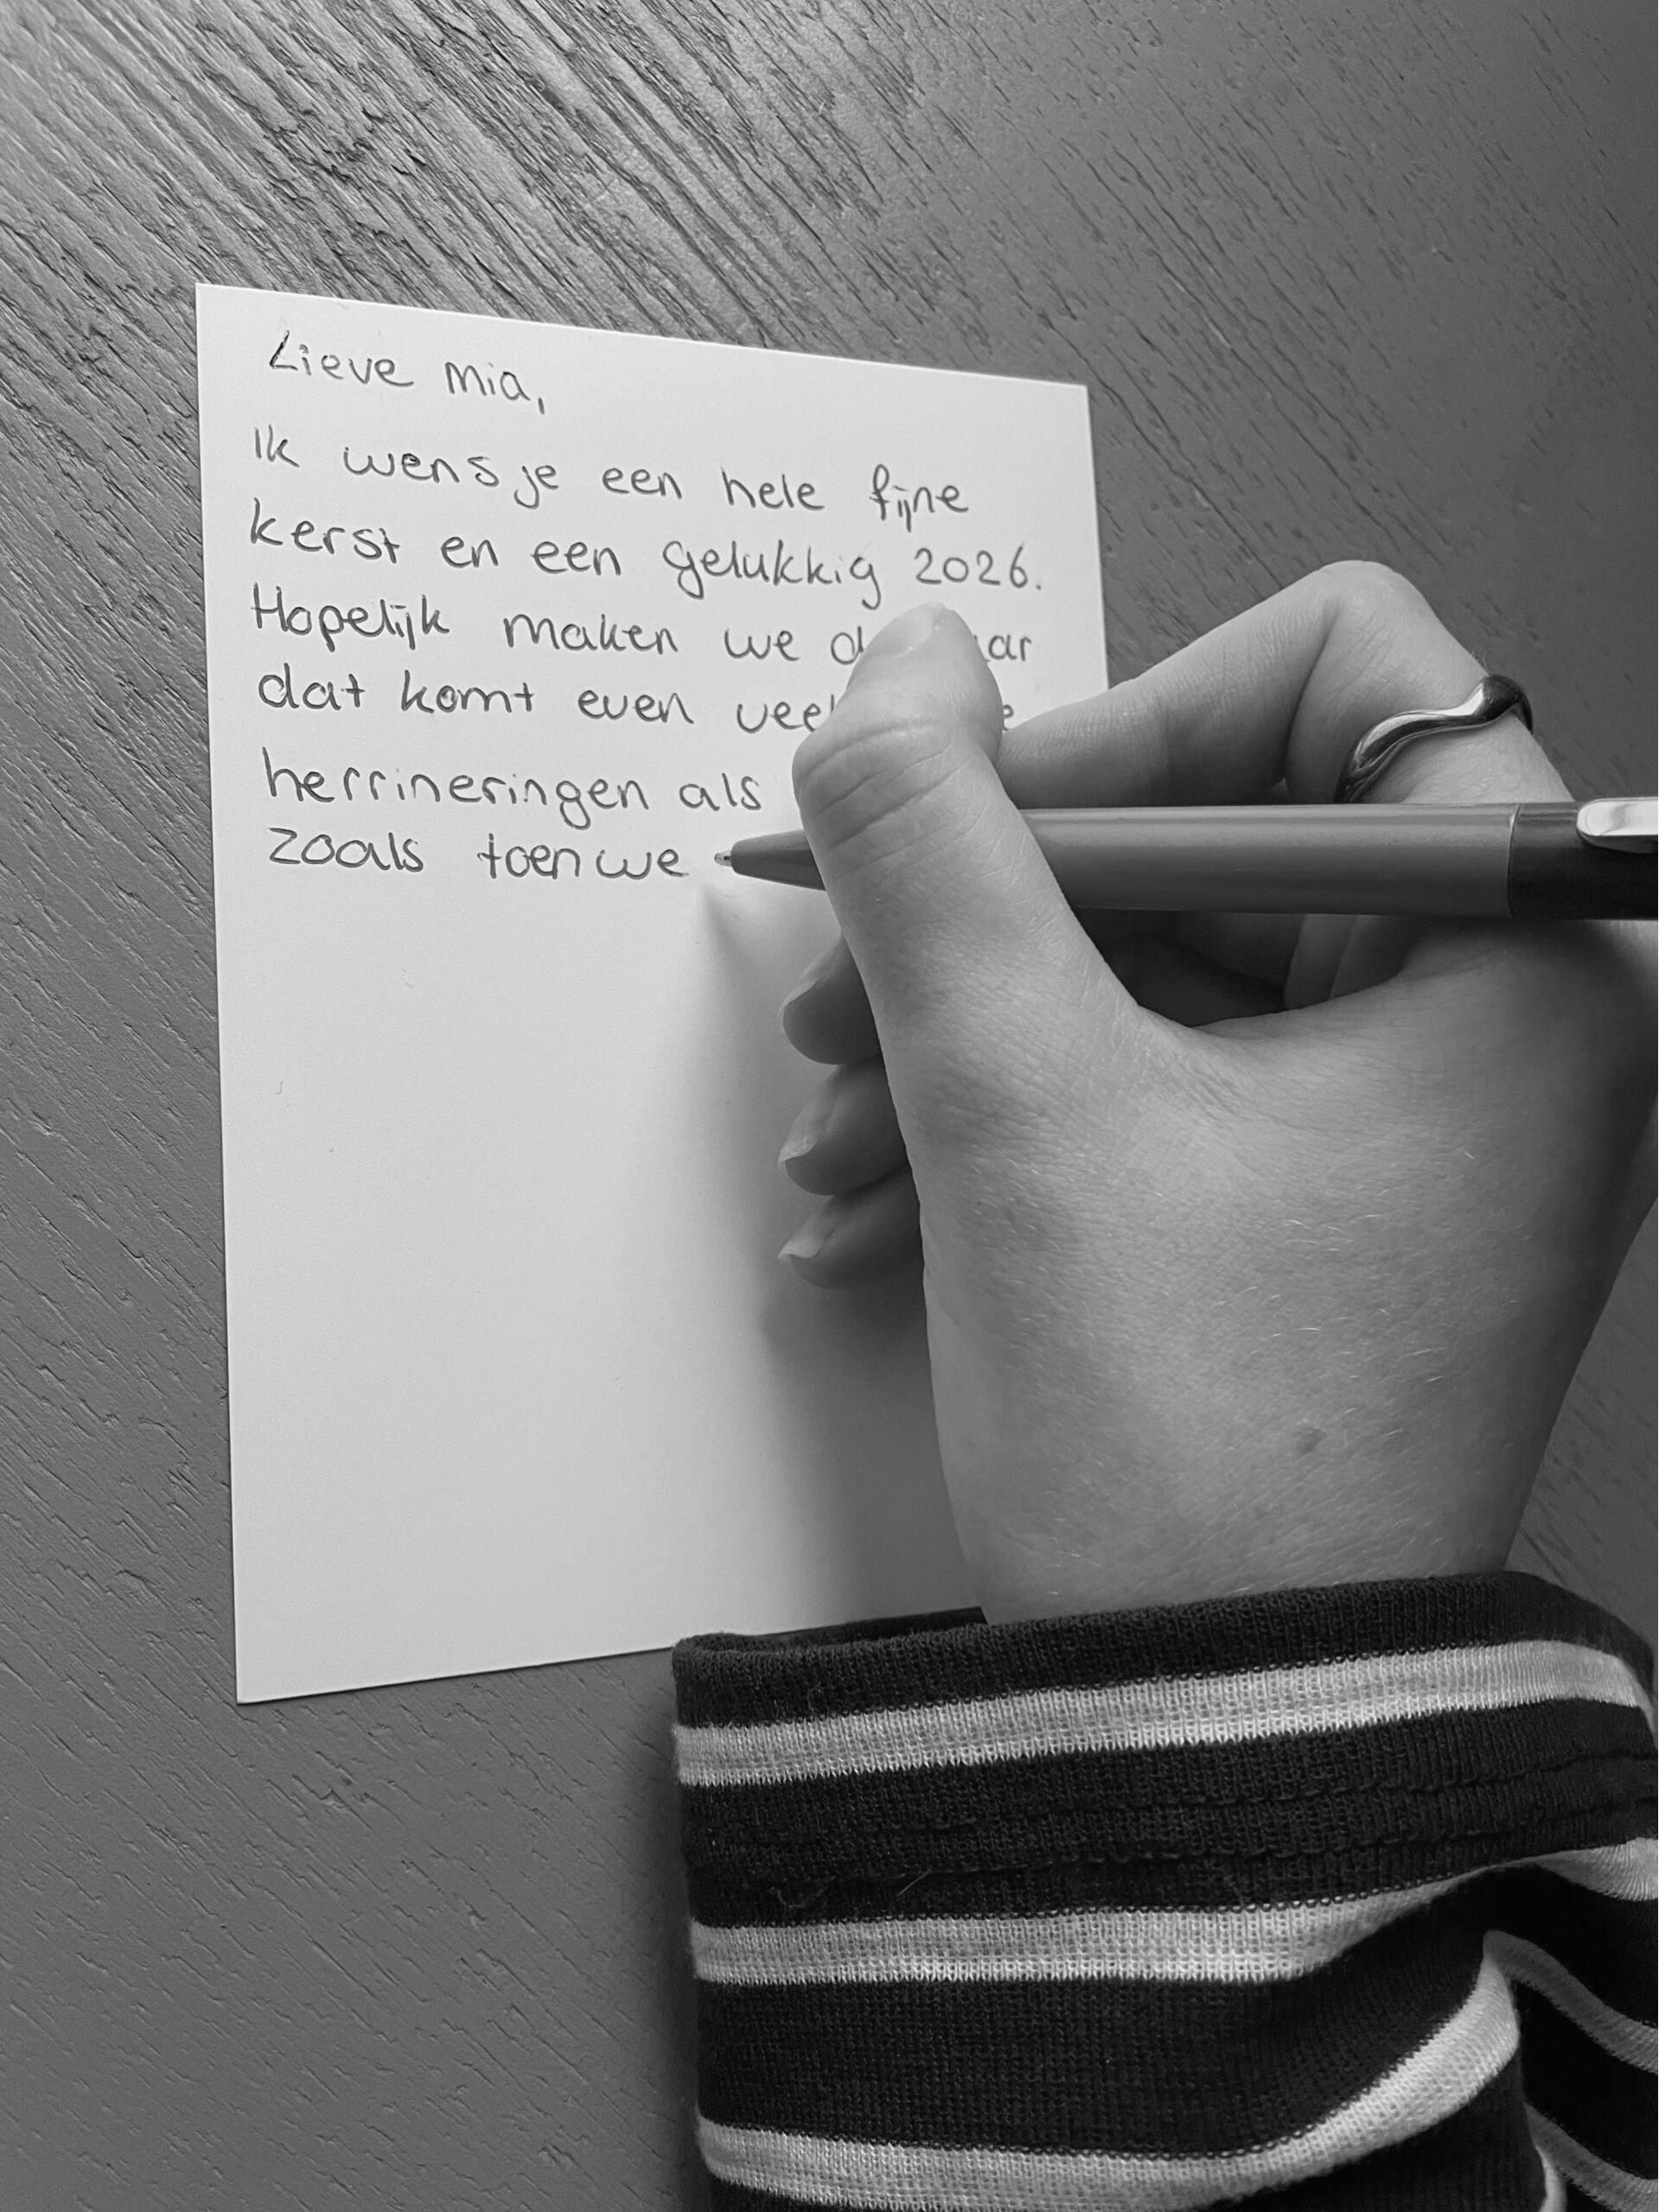 Lieve mia,
Ik wens je een hele fijne
kerst en een gelukkig 2026.
Hopelijk maken we
dat komt even
herrineringen als
zoals toen we